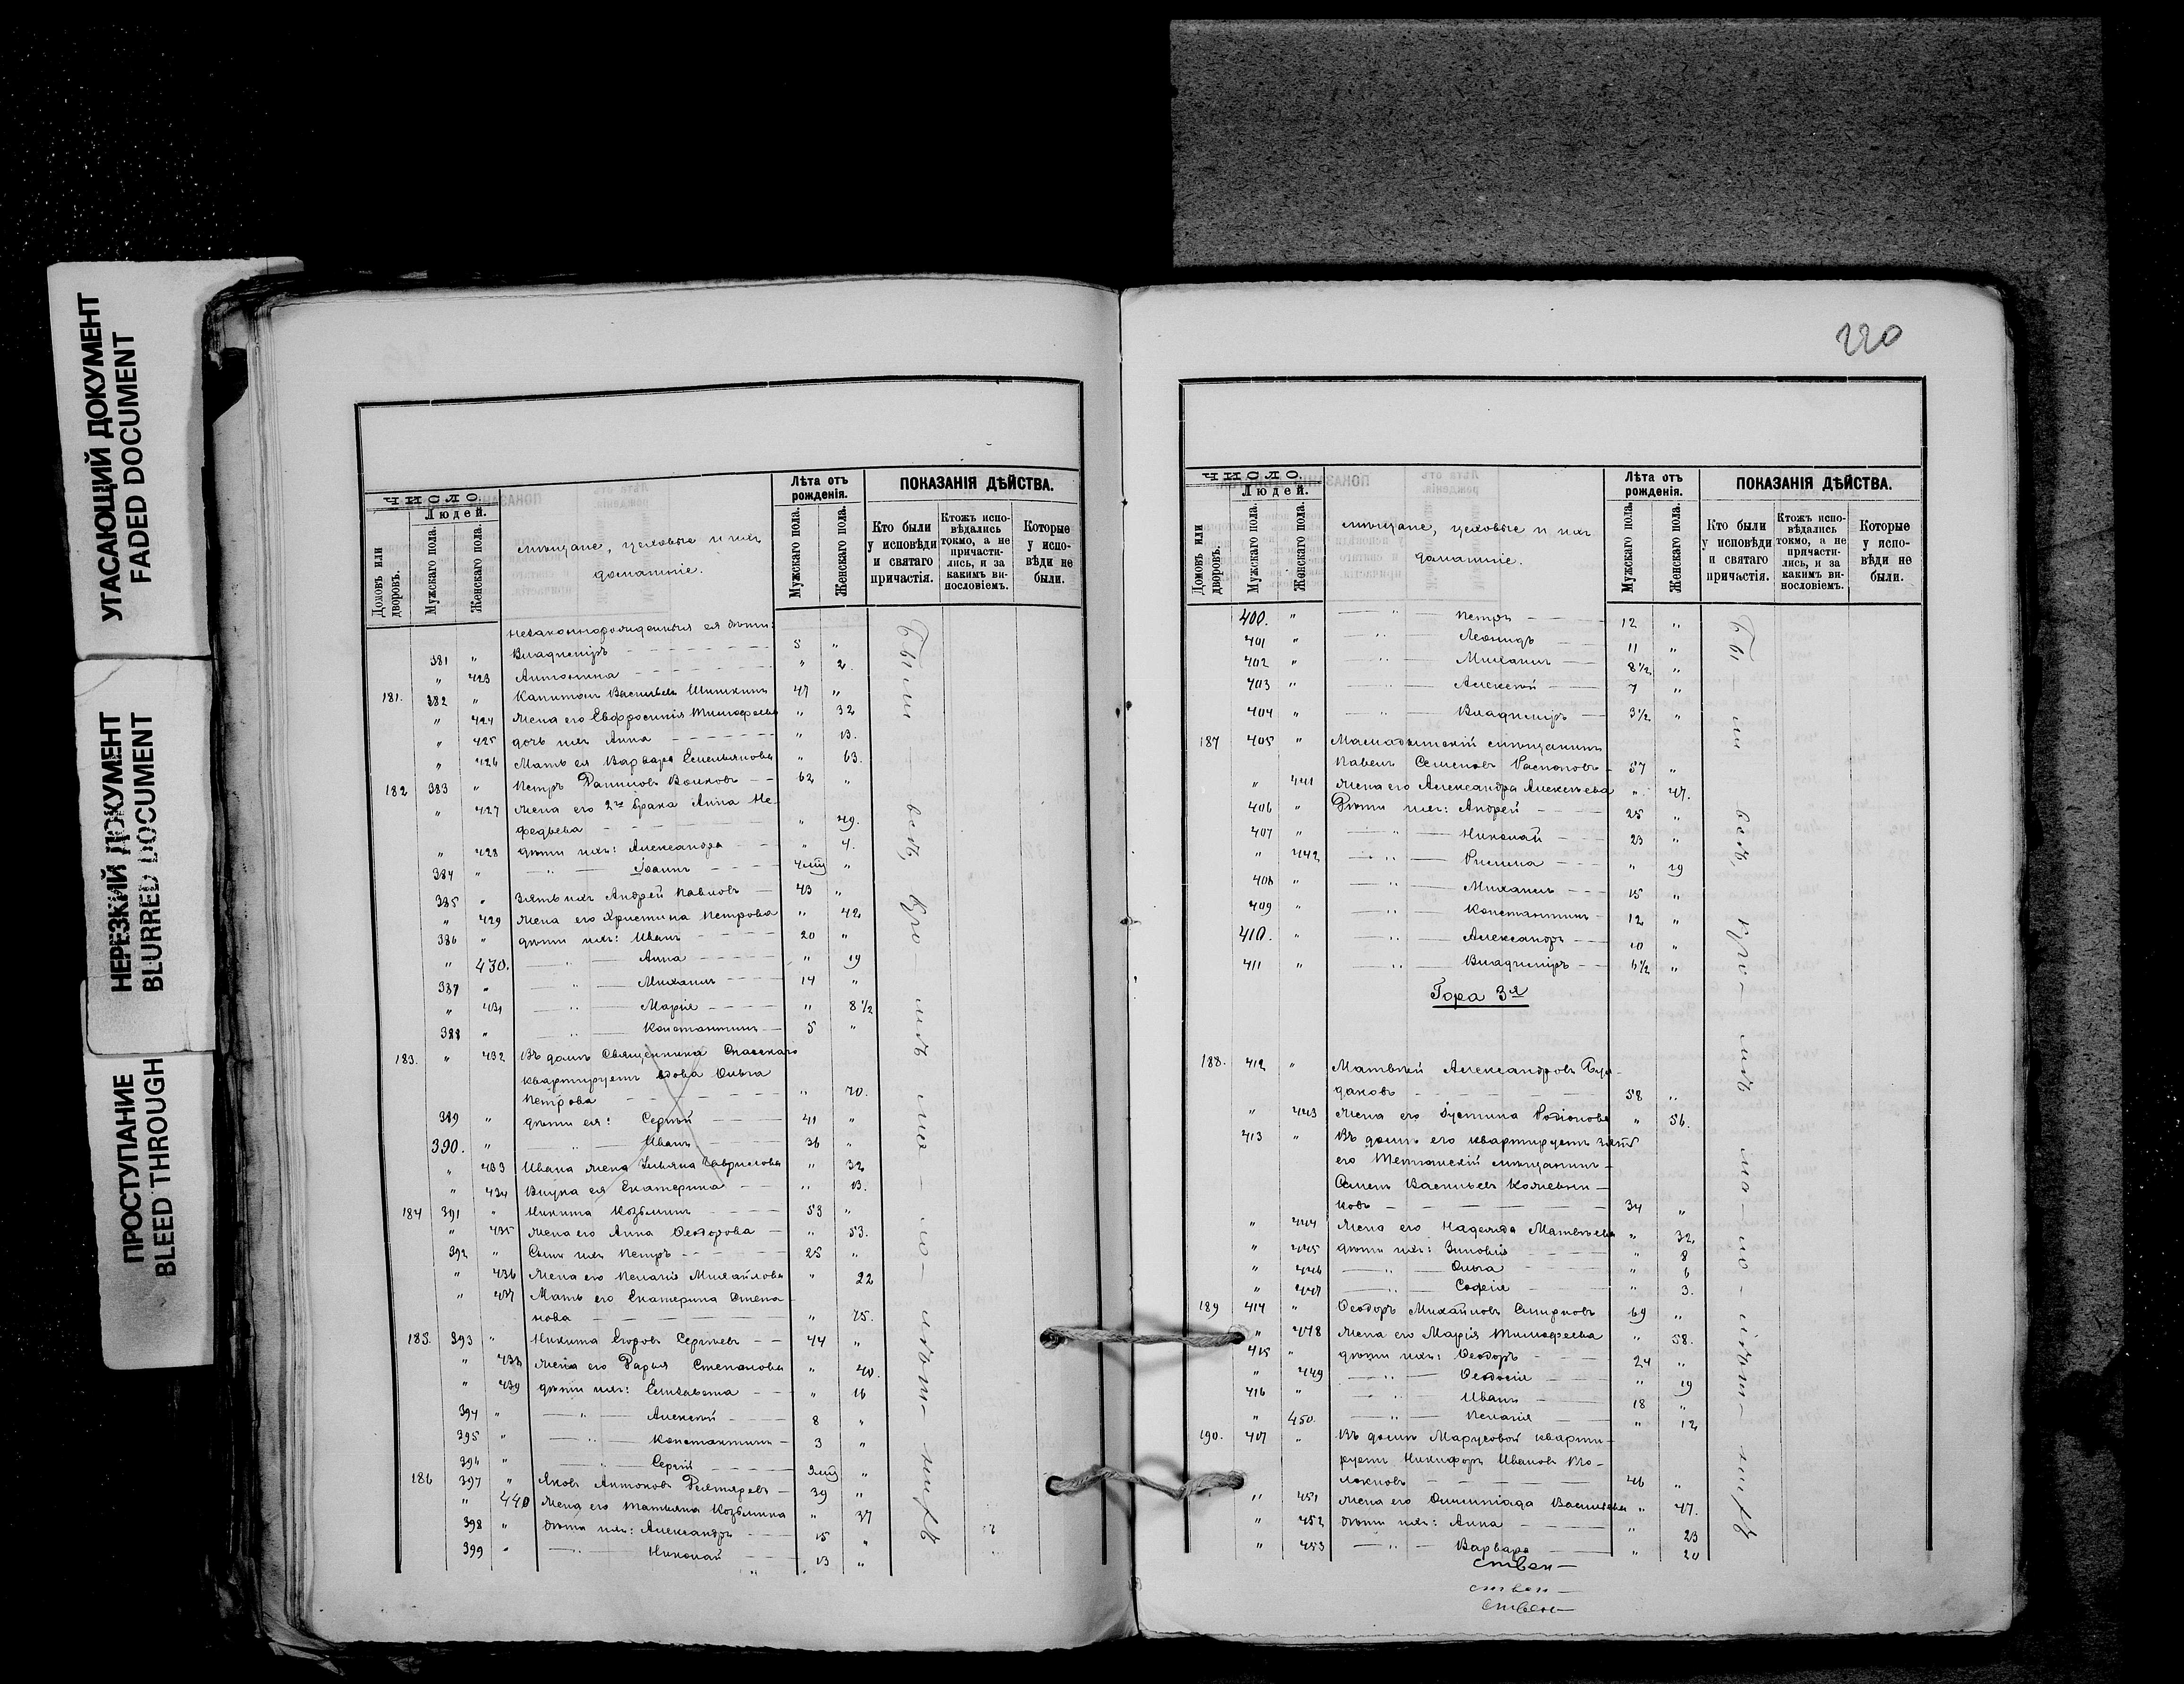 УГАСАЮЩИЙ ДОКУМЕНТ
FADED DOCUMENT
НЕРЕЗКИЙ ДОКУМЕНТ
BLURRED DOCUMENT
ПРОСТУПАНИЕ
BLEED THROUGH
ЧИСЛО.
Людей.
Домовъ или дворовъ.
Мужскаго пола.
Женскаго пола.
мѣщане, цеховые и ихъ
домашніе.
Лѣта отъ рожденія.
Мужскаго пола.
Женскаго пола.
ПОКАЗАНІЯ ДѢЙСТВА.
Кто были у исповѣди и святаго причастія.
Ктожъ исповѣдались токмо, а не причастились, и за какимъ винословіемъ.
Которые у исповѣди не были.
незаконнорожденныя ея дѣти:
381 " Владиміръ 5 "
" 423 Антонина " 2.
181. 382 " Капитонъ Васильевъ Шишкинъ 47 "
" 424 Жена его Евфросинія Тимофеева " 32
" 425 дочь ихъ Анна " 13.
" 426 Мать ея Варвара Емельянова " 63.
182 383 " Петръ Даниловъ Волковъ 62 "
" 427 Жена его 2го брака Анна Не-
федьева " 49.
" 428 дѣти ихъ: Александра " 4.
384 " Іоаннъ "
385 " Зять ихъ Андрей Павловъ 43 "
" 429 Жена его Христина Петрова " 42
386 " дѣти ихъ: Иванъ 20 "
" 430. Анна " 19
387 " Михаилъ 14 "
" 431 Марія " 8½
388 " Константинъ 5 "
183. " 432 Въ домѣ Священника Спасскаго
квартируетъ вдова Ольга
Петрова " 70.
389 " дѣти ея: Сергѣй 41 "
390. " Иванъ 36 "
" 433 Ивана жена Ульяна Гаврилова " 32
" 434 Внука ея Екатерина " 13.
184 391 " Никита Козьминъ 53 "
" 435 Жена его Анна Ѳеодорова " 53.
392 " Сынъ ихъ Петръ 25 "
" 436 Жена его Пелагія Михайлова " 22
" 437 Мать его Екатерина Степа-
нова " 75.
185. 393 " Никита Егоровъ Сергѣевъ 44 "
" 438 Жена его Дарья Степанова " 40.
" 439 дѣти ихъ: Елизавета " 16
394 " Алексѣй 8 "
395 " Константинъ 3 "
396 " Сергѣй "
186 397 " Яковъ Антоновъ Дегтяревъ 39 "
" 440 Жена его Татьяна Козьмина " 37
398 " дѣти ихъ: Александръ 15 "
399 " Николай 13 "
Были всѣ,
220
ЧИСЛО.
Людей.
Домовъ или дворовъ.
Мужскаго пола.
Женскаго пола.
мѣщане, цеховые и ихъ
домашніе.
Лѣта отъ рожденія.
Мужскаго пола.
Женскаго пола.
ПОКАЗАНІЯ ДѢЙСТВА.
Кто были у исповѣди и святаго причастія.
Ктожъ исповѣдались токмо, а не причастились, и за какимъ винословіемъ.
Которые у исповѣди не были.
400. " Петръ 12 "
401 " Леонидъ 11 "
402 " Михаилъ 8½ "
403 " Алексѣй 7 "
404 " Владиміръ 3½ "
187 405 " Мамадышскій мѣщанинъ
Павелъ Семеновъ Распоповъ 57 "
" 441 Жена его Александра Алексѣева " 47.
406 " Дѣти ихъ: Андрей 25 "
407 " Николай 23 "
" 442 " 19
408 " Михаилъ 15 "
409 " Константинъ 12 "
410. " Александръ 10 "
411 " Владиміръ 6½ "
Гора 3я
188. 412 " Матвѣй Александровъ
58 "
" 443 Жена его Іустина Родіонова " 56.
413 " Въ домѣ его квартируетъ зять
его мѣщанинъ
Семенъ Васильевъ Кожевни-
ковъ 34 "
" 444 Жена его Надежда Матвѣева " 32.
" 445 дѣти ихъ: Зиновія " 8
" 446 Ольга " 6
" 447 Софія " 3.
189 414 " Ѳеодоръ Михайловъ Смирновъ 69 "
" 448 Жена его Марія Тимофеева " 58.
415 " дѣти ихъ: Ѳеодоръ 24 "
" 449 Ѳеодосія " 19
416 " Иванъ 18 "
" 450. Пелагія " 12
190. 417 " Въ домѣ Марусовой кварти-
руетъ Никифоръ Ивановъ То-
локновъ 46 "
" 451 Жена его Олимпіада Васильева " 47.
" 452 дѣти ихъ: Анна " 23
" 453 Варвара " 20
всѣ,
ствен-
ствен-
ствен-